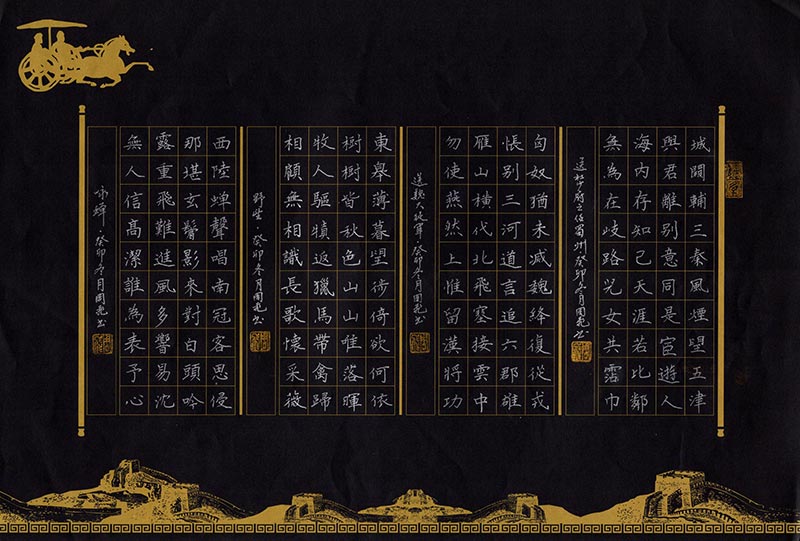 城闕輔三秦風煙望五津
與君離別意同是宦遊人
海內存知己天涯若比鄰
無為在岐路兒女共霑巾
送杜少府之任蜀州癸卯冬月國书
匈奴猶未滅魏絳復從戎
悵別三河道言追六郡雄
雁山橫代北飛塞接雲中
勿使燕然上惟留漢將功
送魏大從軍·癸卯冬月國书
東皋薄暮望徛倚欲何依
樹樹皆秋色山山唯落暉
牧人驅犢返獵馬帶禽歸
相顧無相識長歌懷采薇
野望·癸卯冬月國书
西陸蟬聲唱南冠客思侵
那堪玄鬢影來對白頭吟
露重飛難進風多響易沈
無人信高潔誰為表予心
咏蟬·癸卯冬月國书